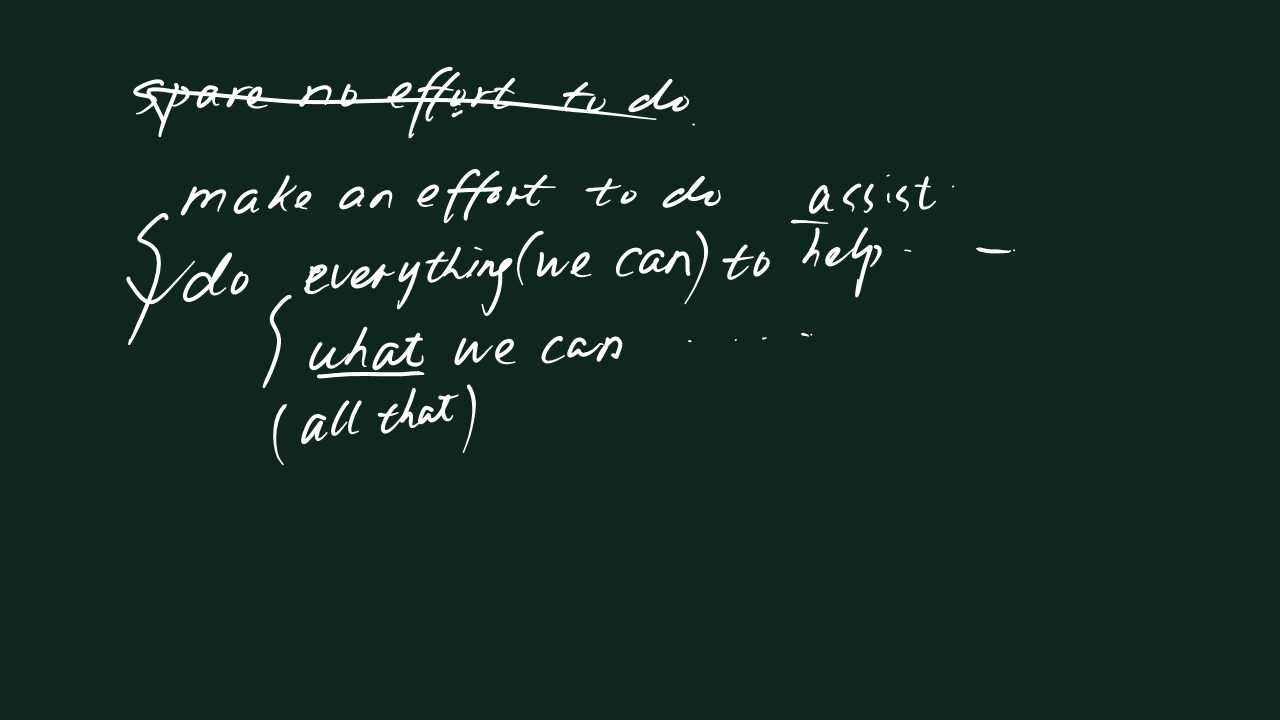 spare no effort to do.
make an effort to do assist.
do everything (we can) to help. -
what we can ....
(all that)